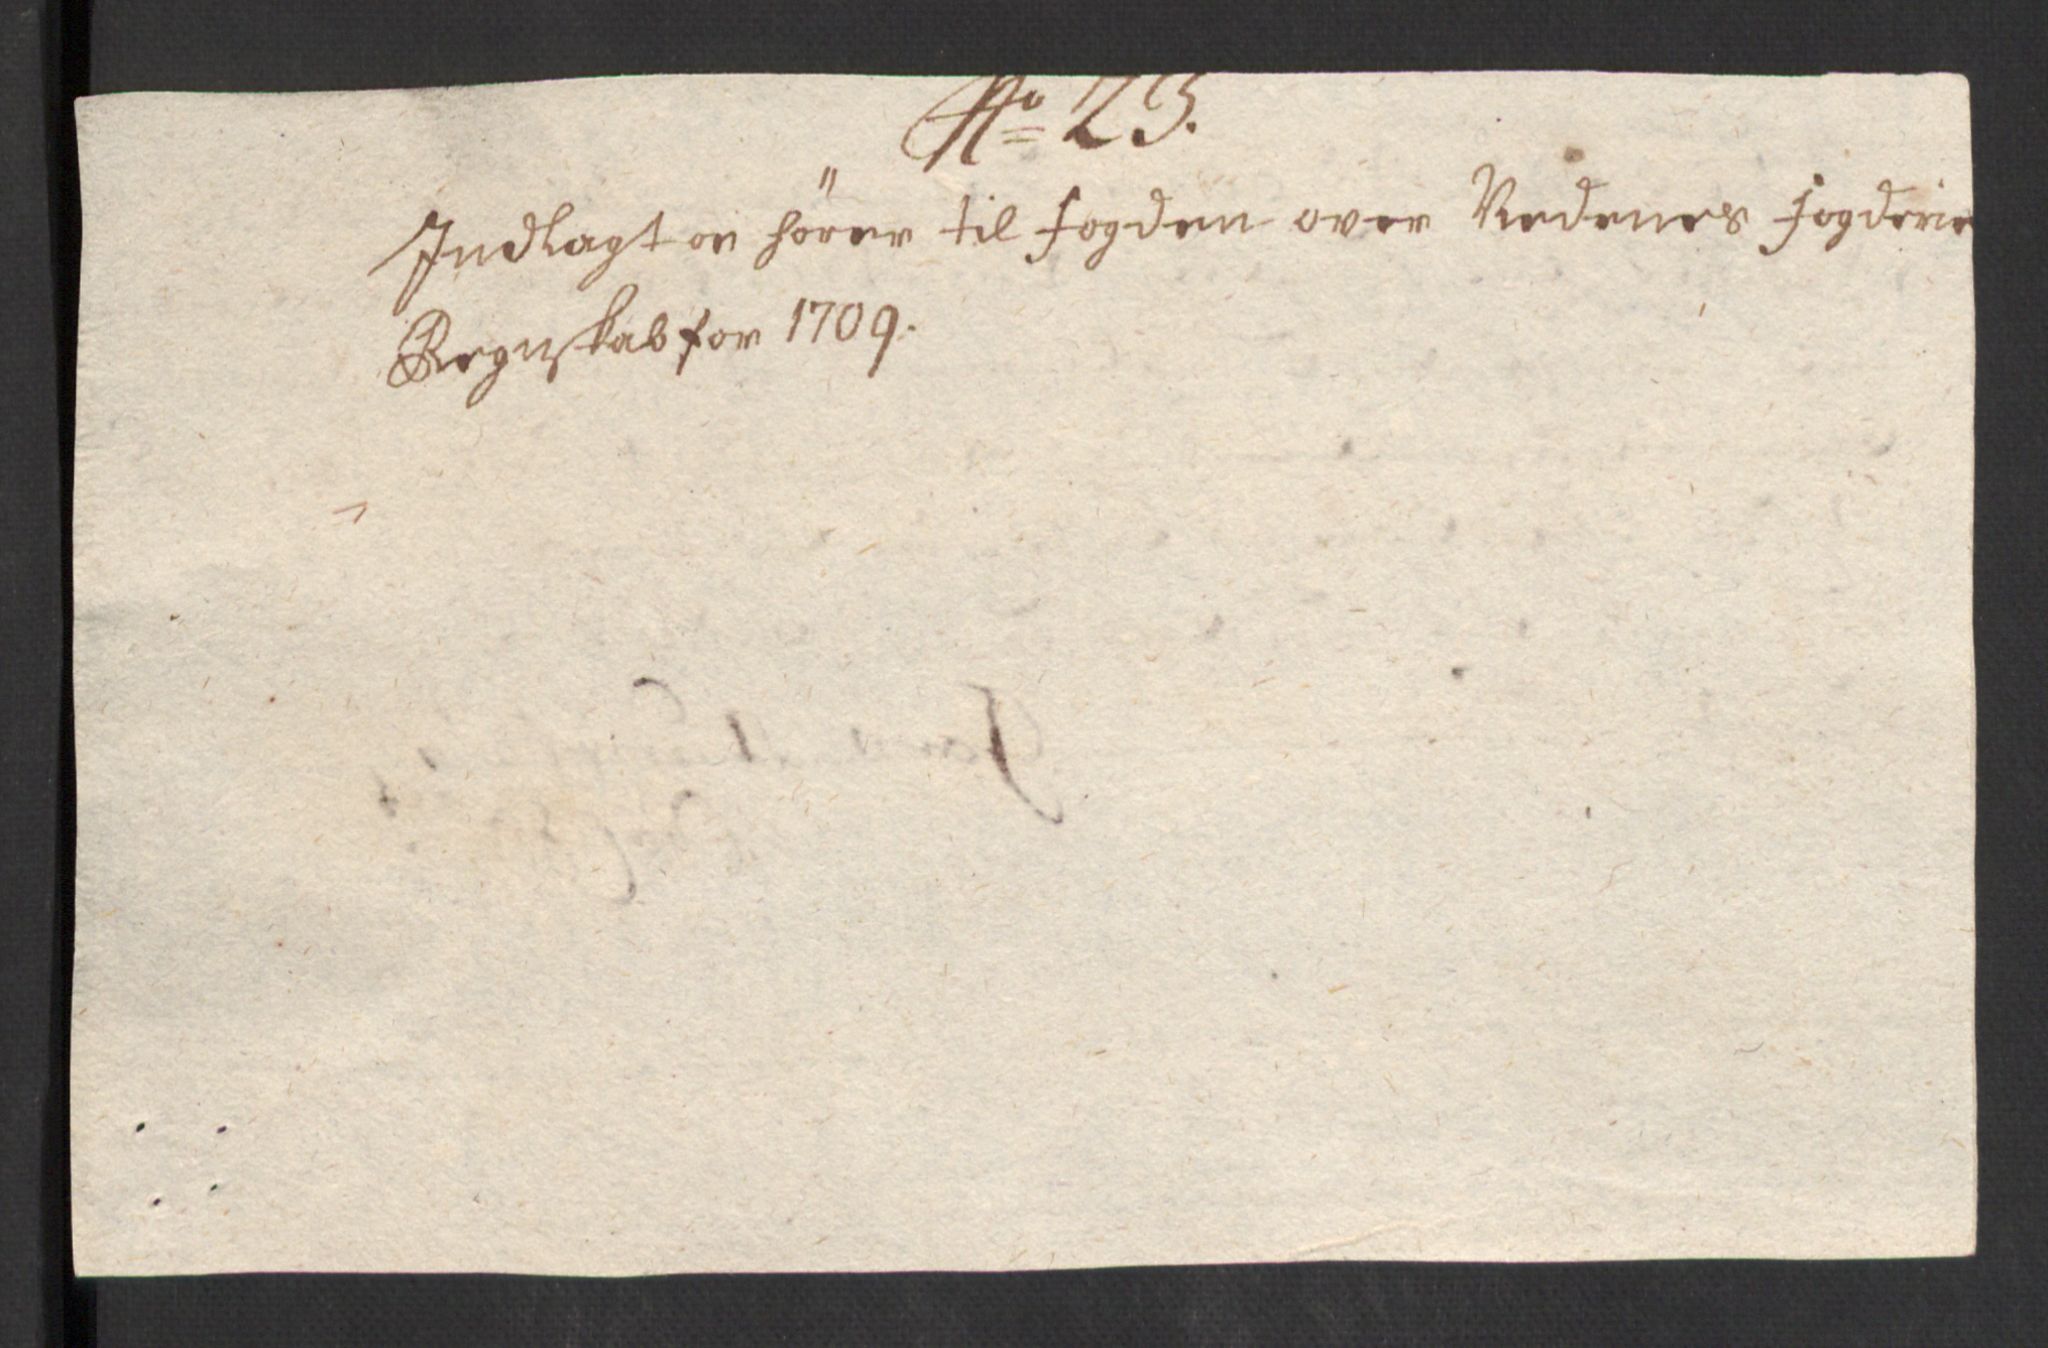 No 23.
Indlagt er hører til fogden over Nedenes fogderie
Regnskab for 1709.